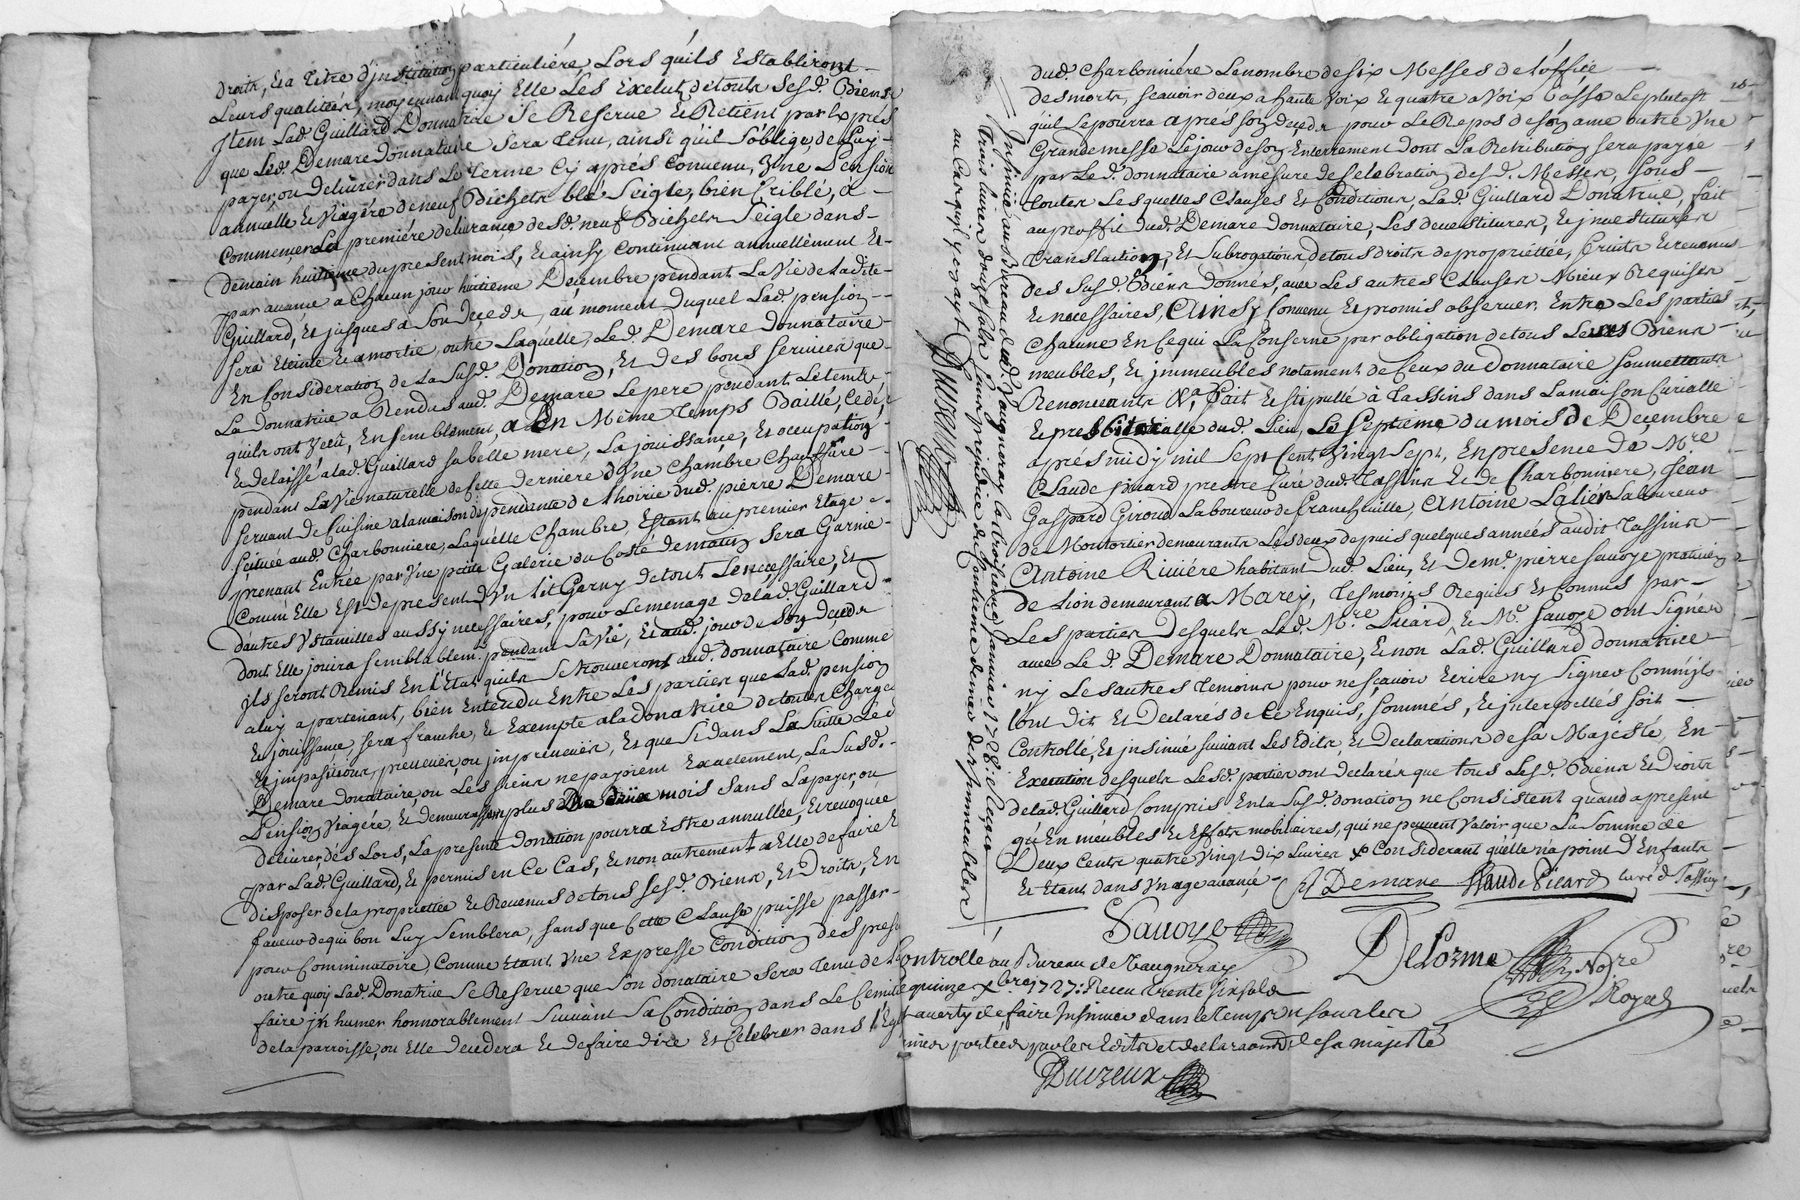 droits, et a titre d'jnstitution particuliére Lors qu'ils Establiront
Leurs qualités, moyennant quoy Elle Les Exclut de touts ses d. Biens
Jtem Lad. Guillard Donnatrice Se Reserve et Retient par Exprés
que Led. Demare Donnataire Sera tenu, ainsi qu'il s'oblige, de Luy
payer, ou delivrer dans Le terme Cy aprés Convenu, Vne Pension
annuelle et Viagére de neuf Bichets blé Seigle, bien Criblé, á
Commencer La premiére delivrance desd. neuf Bichets Seigle dans
demain huitieme du present mois, et ainsy Continuant annuellement et
par avance a Chacun jour huitieme Décembre pendant La vie de ladite
Guillard, et jusques a Son decedz, au moment duquel Lad. pension
Sera Eteinte et amortie, outre Laquelle, Led. Demare Donnataire
En Consideration de La Susd. Donation, Et des bons services que
La donatrice a Rendus aud. Demare Le pere pendant Le temps
quils ont vecû, Ensemblement, a En Même temps Baillé, Cedé,
et delaissé a lad. Guillard sa belle mere, La jouissance, et occupation
pendant La Vie naturelle de Cette derniere d'une Chambre Chauffure
Servant de Cuisine a la maison dependente de l'hoirie dud. pierre Demare
Scituée aud. Charbonniere, Laquelle Chambre Estant au premier Etage
prenant Entrée par Vne petite Galerie du Costé de matin Sera Garnie
Comm'Elle Est de present d'Vn lit Garny de tout Le neccessaire, et
d'autres Vstancilles aussy necessaires, pour Le menage de lad. Guillard
dont Elle jouira semblablem.t pendant sa Vie, et aud. jour de Son decedz
jls seront Remis En l'Etat qu'ils se trouveront aud. donnataire Comme
a luy apartenant, bien Entendu Entre Les parties que Lad. pension
et jouissance, sera franche, et Exempte a la donatrice de toutes Charges
et jmpositions, preveües, ou jmpreveües, Et que Si dans La Suitte Led
Demare donataire, ou Les siens ne payoient Exactement, La Susd.
Pension Viagére, et demeurassent plus de deux mois sans La payer, ou
delivrer, dés Lors, La presente Donation pourra Estre annullée, Et revoquée
par Lad. Guillard, Et permis en Ce Cas, et non autrement a Elle de faire Et
disposer de la proprietée et Revenus de tous ses d. Biens, Et Droits, En
faveur de qui bon Luy Semblera, sans que Cette Clause puisse passer
pour Comminatoire, Comme Etant Vne Expresse Condition des pres
outre quoy Lad. Donatrice Se Reserve que Son donataire Sera tenu de
faire jnhumer honnorablement Suivant Sa Condition dans Le Cemitie
de la parroisse, ou Elle decedera et de faire dire Et Celebrer dans l'Egl
dud. Charbonniére Le nombre de six Messes de l'office
des morts, scavoir deux a haute Voix et quatre a Voix basse Le plutost
qu'il se pourra aprés son decedz pour Le Repos de son ame outre Vne
Grande messe Le jour de son Enterrement dont La Retribution sera payée
par Le d. Donnataire a mesure de Celebration des d. Messes, sous
toutes Lesquelles Clauses et Conditions, Lad. Guillard Donatrice, fait
au proffit dud. Demare Donnataire, Les devestitures, Et jnvestitures
translation, Et Subrogations de tous droits de proprietée, fruits et revenus
des Sus d. Biens Donnés, avec Les autres Clauses Mieux Requises
et necessaires, Ainsy Convenu et promis observer Entre Les parties
Chacune En Ce qui La Conserne par obligation de tous Leurs Biens
meubles, et jmmeubles notament de Ceux du Donnataire soumettants
Renonceants &.a Fait et stipullé á tassins dans La maison Curialle
et presbiteralle dud. Lieu, Le Septieme du mois de Décembre
aprés midy mil sept Cent Vingt Sept, En presence de M.re
Claude picard prestre Curé dud. tassins et de Charbonniere, Jean
Gaspard Giroud Laboureur de francheville, Antoine Lalier Laboureur
de Montortier demeurants Les deux depuis quelques années audit tassins
Antoine Riviére habitant dud. Lieu, Et de M.e pierre Savoye praticien
de Lion demeurant a Marcy, tesmoins Requis et Connus par
Les parties Desquels Led. M.re Picard, et M.e Savoye ont Signés
avec Le d. Demare Donnataire, et non Lad. Guillard donnatrice
ny Les autres temoins pour ne sçavoir Ecrire ny Signer Comm'jls
l'ont dit et Declarés de Ce Enquis, sommés, et jnterpellés soit
Controllé, et jnsinué suivant Les Edits, et Declarations de sa Majesté, En
Execution desquels Lesd. parties ont declarés que tous Lesd. Biens et Droits
de lad. Guillard Compris En la Sus d. donation ne Consistent quand a present
qu'En meubles et Effets mobiliaires, qui ne peuvent Valoir que La Somme de
Deux Cents quatre Vingt Dix Livres Considerant qu'elle n'a point D'Enfants
et Etant dans Vn age avancé
Demare Claude Picard curé d Tassins
Savoye
Delorme Not.re Royal
Controllé au Bureau de Vaugneray
quinze xbre 1727: Receu trente six sols
averty de faire Insinuer dans le temps
portées par les Edits et declaraons de sa majesté
Duvzeux
Insinué au Bureau dud. Vaugneray le troisieme Janvier 1728: Receu
trois livres douze sols sans prejudice du Centieme denier des immeubles
au Cas quil y en ayt Duvzeux